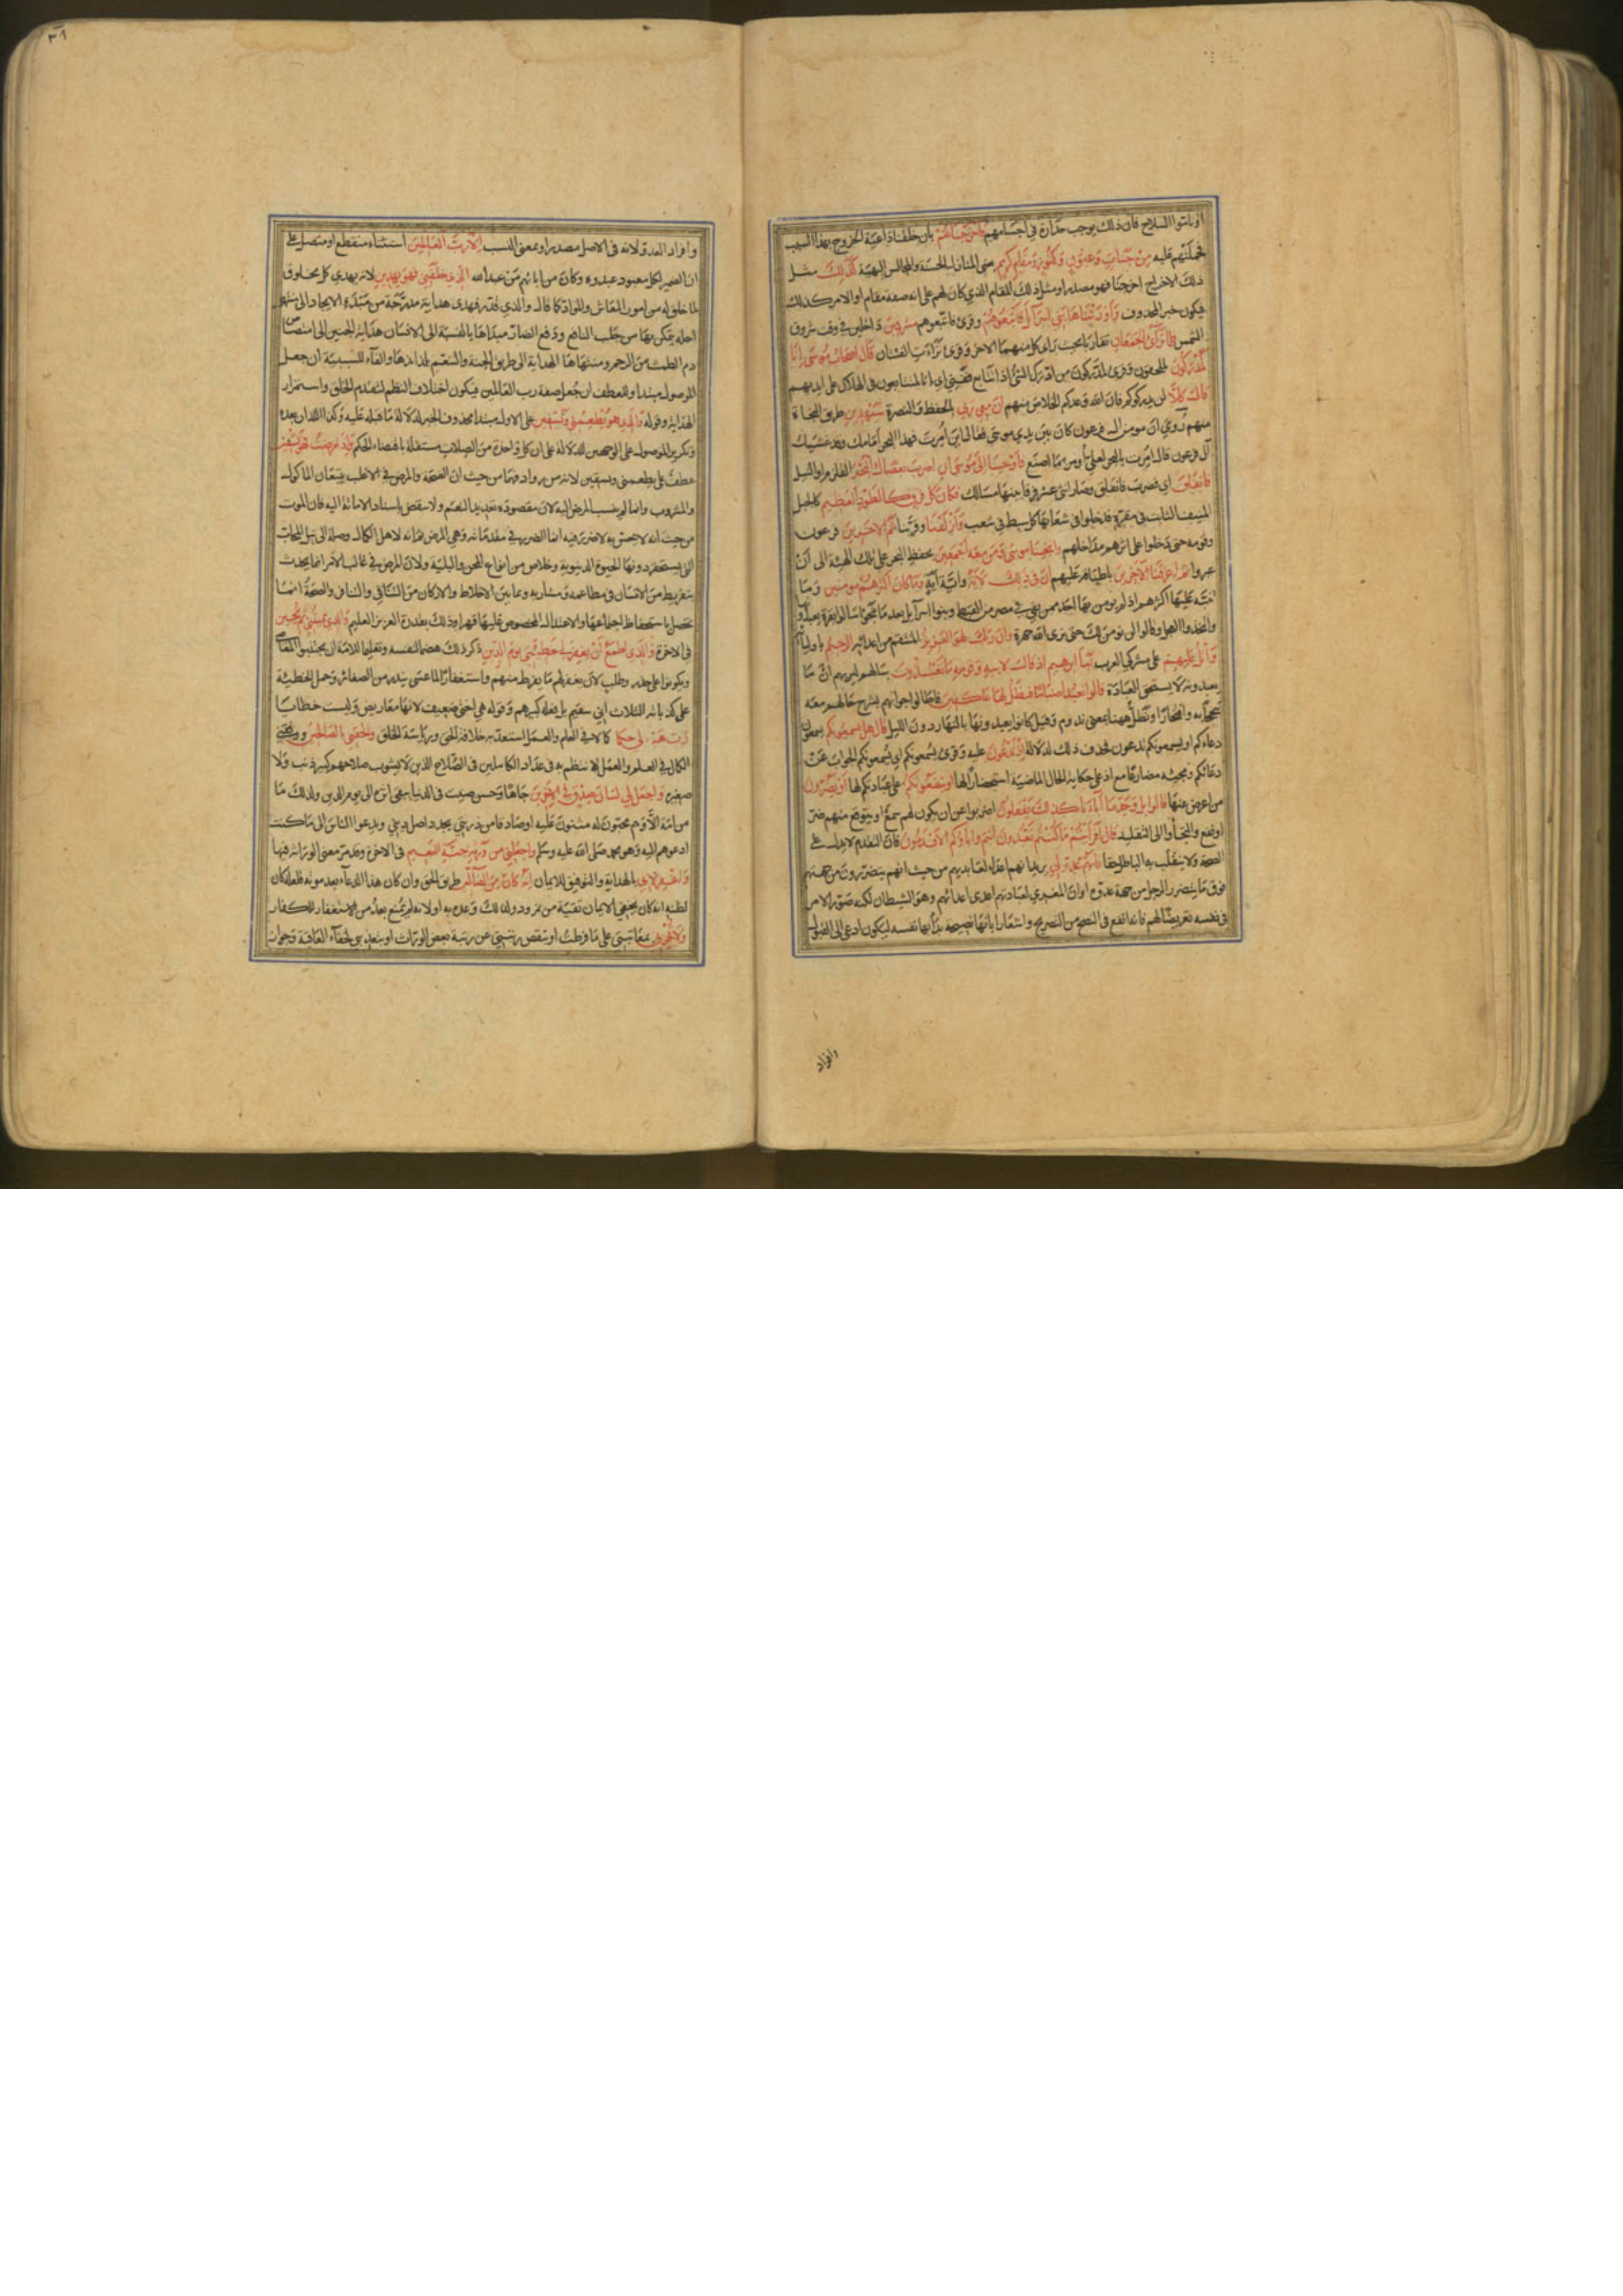 او تاموا السلاح فان ذلك يوجب حدارة في اجسامهم فاخرجناهم بان خلقنا داعية الخروج بهذا السبب
فحملتهم عليه من جنات وعيون وكنوز ومقام كريم يعني المنازل الحسنة والمجالس البهية كذلك مثل
ذلك الاخراج اخرجنا فهو مصدر او مثل ذلك المقام الذي كان لهم على انه صفة مقام او الامر كذلك
فيكون خبر المحذوف واورثناها بني اسرآئل فاتبعوهم وقرئ فاتبعوهم مشرقين داخلين في وقت شروق
الشمس فلما ترآئ الجمعان تقاربا بحيث راى كل منهما الاخر وقرئ ترآءت الفئتان قال اصحاب موسى انا
لمدركون لملحقون وقرئ لمدركون من ادرك الشئ اذا تتابع ففني اي انا لمتتابعون في الهلاك على ايديهم
قال كلا لن يدركوكم فان الله وعدكم الخلاص منهم ان معي ربي بالحفظ والنصرة سيهدين طريق النجاة
منهم روي ان مومن ال فرعون كان بين يدي موسى فقال اين امرت فهذا البحر امامك وقد غشيك
آل فرعون قال امرت بالبحر لعلي اومر بما اصنع فاوحينا الى موسى ان اضرب بعصاك البحر القلزم او النيل
فانفلق اي فضرب فانفلق وصار اثنى عشر فرقا بينها مسالك فكان كل فرق كالطود العظيم كالجبل
المنيف الثابت في مقره فدخلوا في شعابها كل سبط في شعب وازلفنا وقربنا ثم الاخرين فرعون
وقومه حتى دخلوا على اثرهم مداخلهم وانجينا موسى ومن معه اجمعين بحفظ البحر على تلك الهيئة الى ان
عبروا ثم اغرقنا الاخرين باطباقه عليهم ان في ذلك لآية واية آية وما كان اكثرهم مومنين وما
تنبه عليها اكثرهم اذ لم يومن بها احد ممن بقي في مصر من القبط وبنوا اسرآيل بعد ما نجوا سالوا بقرة يعبدونها
واتخذوا العجل وقالوا لن نومن لك حتى نرى الله جهرة وان ربك لهو العزيز المنتقم من اعدائه الرحيم باوليائه
واتل عليهم على مشركي العرب نبأ ابرهيم اذ قال لابيه وقومه ما تعبدون سالهم ليريهم ان ما
يعبدونه لا يستحق العبادة قالوا نعبد اصناما فنظل لها عاكفين فاطالوا جوابهم بشرح حالهم معه
تبجحا به وافتخارا ونظل ههنا بمعنى ندوم وقيل كانوا يعبدونها بالنهار دون الليل قال هل يسمعونكم يسمعون
دعاءكم او يسمعونكم تدعون فحذف ذلك لدلالة اذ تدعون عليه وقرئ يسمعونكم اي يسمعونكم الجواب عن
دعائكم ومجيئه مضارعا مع اذ على حكاية الحال الماضية استحضارا لها او ينفعونكم على عبادتكم لها او يضرون
من اعرض عنها قالوا بل وجدنا آباءنا كذلك يفعلون اضربوا عن ان يكون لهم سمع او يتوقع منهم ضر
او نفع والتجأوا الى التقليد قال افرايتم ما كنتم تعبدون انتم واباؤكم الاقدمون فان التقدم لا يدل على
الصحة ولا ينقلب به الباطل حقا فانهم عدو لي يريد انهم اعداء لعابديهم من حيث انهم يتضررون من جهتهم
فوق ما يتضرر الرجل من جهة عدوه او ان المغري لعبادتهم اعدى اعدائهم وهو الشيطان لكنه صور الامر
في نفسه تعريضا لهم فانه انفع في النصح من التصريح واشعارا بانها نصيحة بدأ بها نفسه ليكون ادعى الى القبول
وافراد
٣٨
وافراد العدو لانه في الاصل مصدر او بمعنى النسب الا رب العالمين استثناء منقطع او متصل على
ان الضمير لكل معبود عبدوه وكان من ابائهم من عبد الله الذي خلقني فهو يهدين لانه يهدي كل مخلوق
لما خلق له من امور المعاش والمعاد كما قال والذي قدر فهدى هداية مدرجة من مبدء الايجاد الى منتهى
اجله يتمكن بها من جلب النافع ودفع الضار مبداها بالنسبة الى الانسان هداية الجنين الى امتصاص
دم الطمث من الرحم ومنتهاها الهداية الى طريق الجنة والتنعم بلذائذها والفآء للسببية ان جعل
الموصول مبتدا وللعطف ان جعل صفة رب العالمين فيكون اختلاف النظم لتقدم الخلق واستمرار
الهداية وقوله والذي هو يطعمني ويسقين على الاول مبتدا محذوف الخبر لدلالة ما قبله عليه وكذا اللذان بعده
وتكرير الموصول على الوجهين للدلالة على ان كل واحدة من الصلات مستقلة باقتضاء الحكم واذا مرضت فهو يشفين
عطف على يطعمني ويسقين لانه من روادفهما من حيث ان الصحة والمرض في الاغلب يتبعان الماكول
والمشروب وانما لم ينسب المرض اليه لان مقصوده تعديد النعم ولا ينقض باسناد الاماتة اليه فان الموت
من حيث انه لا يحس به لا ضرر فيه انما الضرر في مقدماته وهي المرض ثم انه لاهل الكمال وصلة الى نيل المحاب
التي يستحقر دونها الحيوة الدنيوية وخلاص من انواع المحن والبلية ولان المرض في غالب الامر انما يحدث
بتفريط من الانسان في مطاعمه ومشاربه وبما بين الاخلاط والاركان من التنافي والتنافر والصحة انما
تحصل باستحفاظ اجتماعها والاعتدال المخصوص عليها قهرا وذلك بقدرة العزيز العليم والذي يميتني ثم يحيين
في الاخرة والذي اطمع ان يغفر لي خطيئتي يوم الدين ذكر ذلك هضما لنفسه وتعليما للامة ان يجتنبوا المعاصي
ويكونوا على حذر وطلب لان يغفر لهم ما يفرط منهم واستغفارا لما عسى يندر من الصغائر وحمل الخطيئة
على كذباته الثلاث اني سقيم بل فعله كبيرهم وقوله هي اختي ضعيف لانها معاريض وليست خطايا
رب هب لي حكما كمالا في العلم والعمل استعد به خلافة الحق ورياسة الخلق والحقني بالصالحين ووفقني
الكمال في العلم والعمل لانتظم به في عداد الكاملين في الصلاح الذين لا يشوب صلاحهم كبير ذنب ولا
صغيره واجعل لي لسان صدق في الاخرين جاها وحسن صيت في الدنيا يبقى اثره الى يوم الدين ولذلك ما
من امة الا وهم محبون له مثنون عليه او صادقا من ذريتي يجدد اصل ديني ويدعوا الناس الى ما كنت
ادعوهم اليه وهو محمد صلى الله عليه وسلم واجعلني من ورثة جنة النعيم في الاخرة وقد مر معنى الوراثة فيها
واغفر لابي بالهداية والتوفيق للايمان انه كان من الضآلين طريق الحق وان كان هذا الدعآء بعد موته فلعله كان
لظنه انه كان يخفي الايمان تقية من نمرود ولذلك وعده به او لانه لم يمنع بعد من الاستغفار للكفار
ولا تخزني بمعاتبتي على ما فرطت او بنقص رتبتي عن رتبة بعض الوراث او بتعذيبي لخفآء العاقبة وجواز